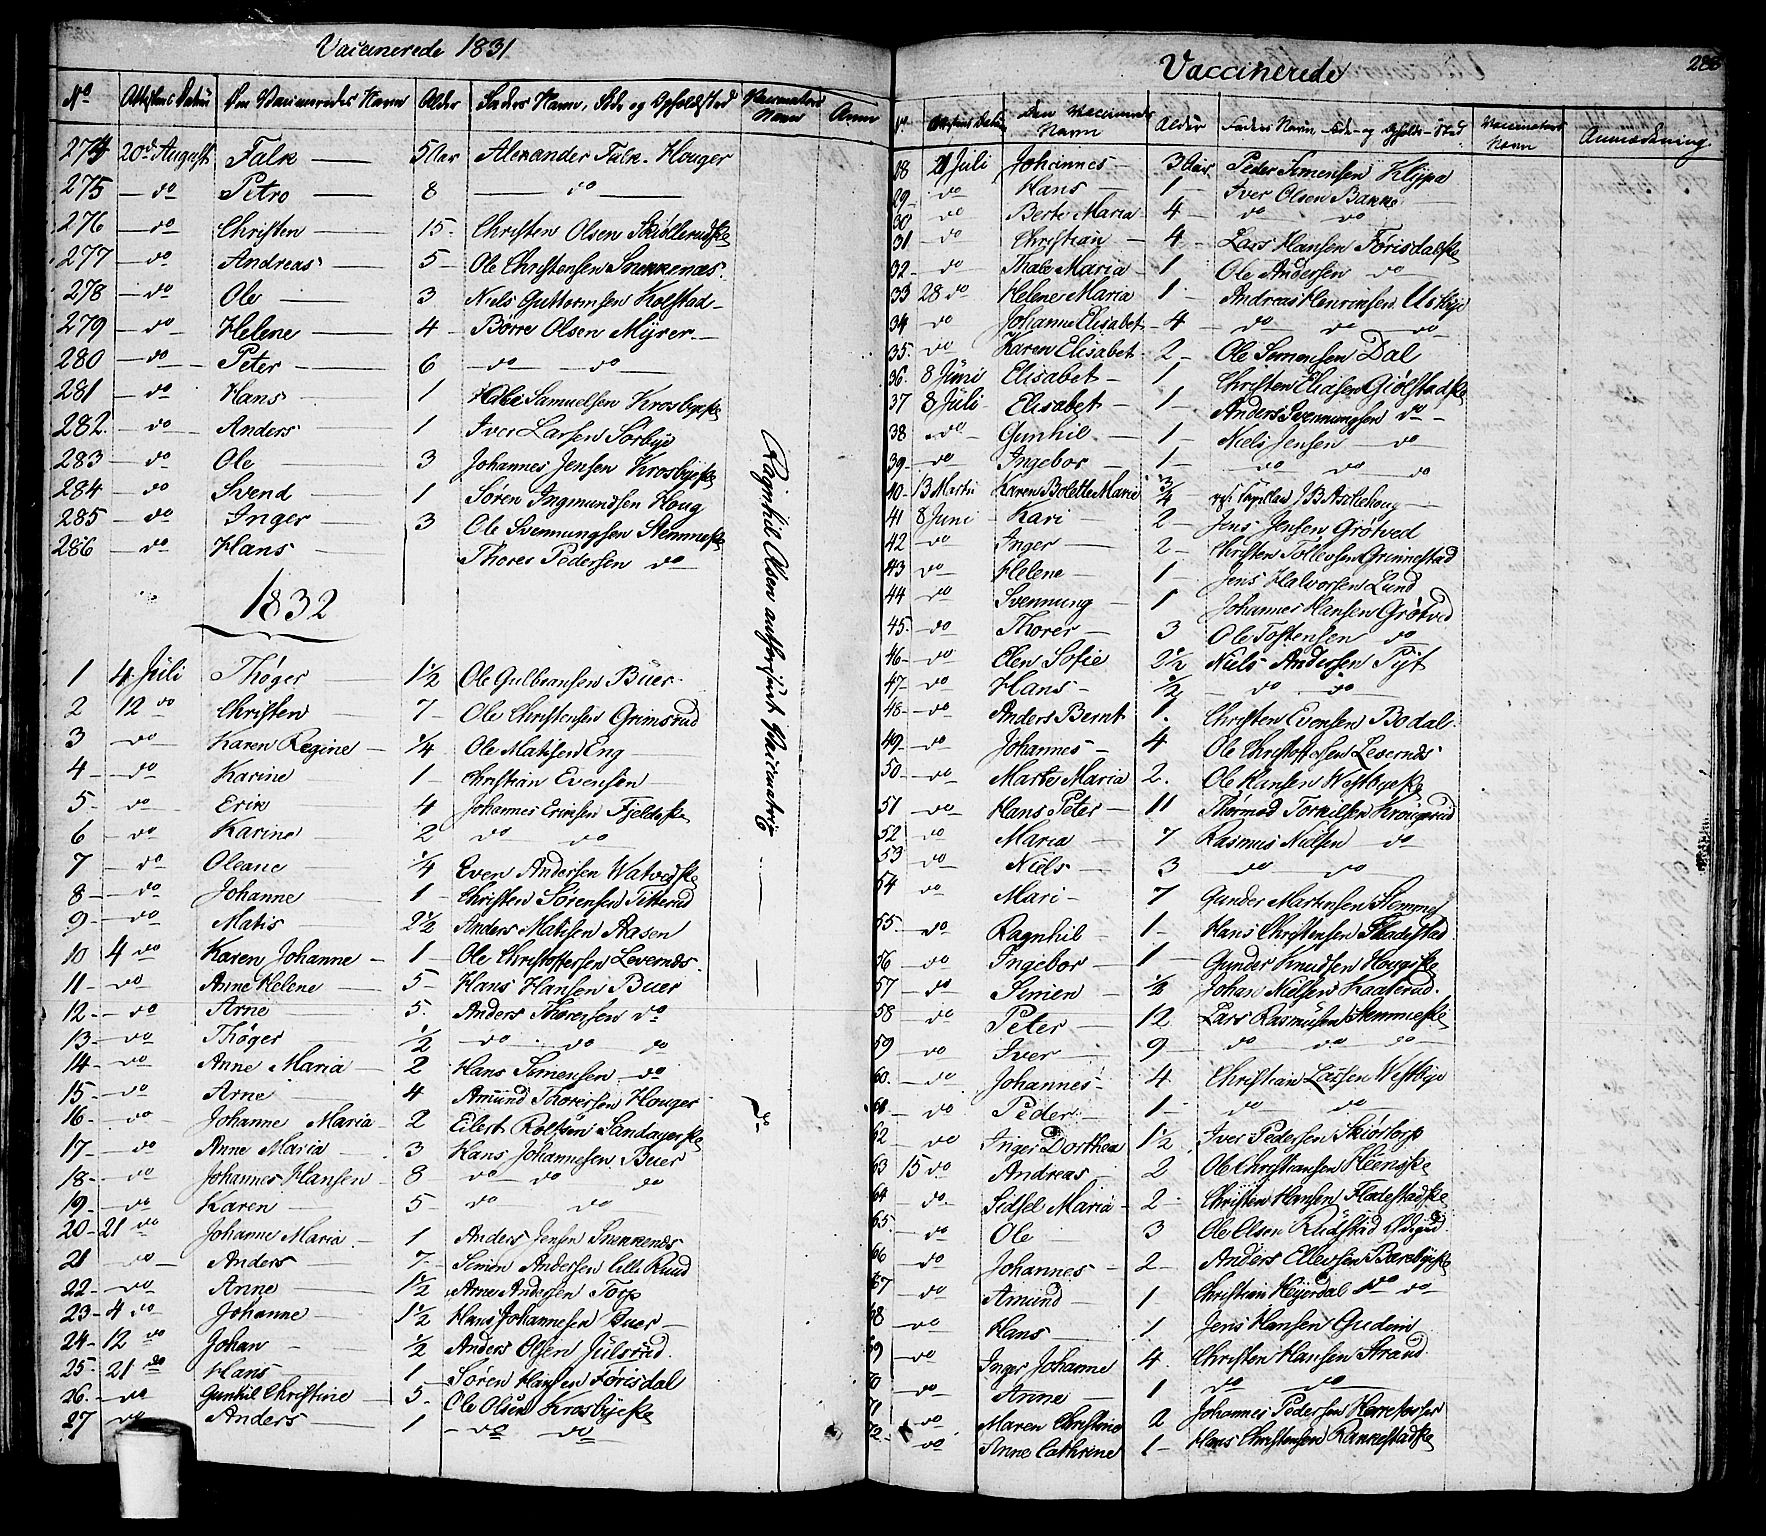 Vaccinerede 1831
No Attestens Datum Den Vaccineredes Navn Alder Faders Navn, Std: og Opholdssted Vaccinateurs Navn Anm
274 20de August Falk — 5 Aar Alexander Falk. Houger
275 — do Petro — 8 — do —
276 — do Christen — 15 - Christen Olsen Skiöllerudske
277 — do Andreas — 5 - Ole Christensen Snekkenæs.
278 — do Ole — 3 Niels Guttormsen Kolstad —
279 — do Helene — 4 - Börre Olsen Myrer —
280 — do Peter — 6 — do — do —
281 — do Hans — 1 Samuelsen Krosbyeske
282. — do Anders — 1 Iver Larsen Sörbye
283 — do Ole — 3 Johannes Jensen Krosbyeske
284 — do Svend — 1 Sören Ingmundsen Houg
285 — do Inger — 3 Ole Svennungsen Stemmeske
286 — do Hans — Thores Pedersen do
Ragnhil Olsen authoriseret Vaccinatrice
1832
1 4 Juli Thöger 1 1/2 Ole Gulbransen Buer
2 12 do Christen — 7 - Ole Christensen Grimsrud
3 — do Karen Regine — 1/4 Ole Matisen Eng —
4 — do Karine 1 — Christian Evensen
5 - do Erik 4 Johannes Eriksen Fjeldske
6 — do Karine 2 do do
7 — do Oleane 1/4 Even Andersen Watvedske
8 — do Johanne 1 - Christen Sörensen Titterud
9 — do Matis — 2 1/2 Anders Matisen Aasen
10 4 do Karen Johanne — 1 - Ole Christoffersen Levernæs.
11 — do Anne Helene — 5 - Hans Hansen Buer
12 — do Arne — 5. Anders Thoresen do
13 — do Thöger 1/2 — do — do do
14 — do Anne Maria — 2 Hans Simensen do
15 — do Arne — 4 Amund Thoresen Houger
16 — do Johanne Maria 2 Eilert Rolfsen Sandagerske
17 — do Anne Maria 3 Hans Johannesen Buer
18 — do Johannes Hansen — 8 — do — do do
19 — do Karen — 5 — do do
20 — 21 do Johanne Maria. 1 Anders Jensen Snekkenæs
21 — do Anders — 7 - Simen Andersen lille Ruud
22 — do Anne 1 1/2 Arne Andersen Torp
23 — 4 do Johanne — 1 1/2 Hans Johannesen Buer —
24 — 12 do Johan 1/2 Anders Olsen Julsrud.
25 - 21 do Hans 1 Sören Hansen Förisdal
26. — do Gunhil Christine 5 - Ole Olsen Krosbyeske
27 do Anders 1 — do do
Vaccinerede
288
No Attestens Datum Den Vaccineredes Navn Alder Faders Navn Std: og Opholds-Sted Vaccinateurs Navn Anmærkning.
28 21 Juli Johannes — 3 Aar. Peder Simensen Klypa
29 — do Hans — 1 — Iver Olsen Bakke
30 do Berte Maria 4 — do do
31 — do Christian — 4 - Lars Hansen Förisdalske
32 — do Thale Maria — 1 Ole Andersen do
33 28 do Helene Maria 1 — Andreas Henriksen Usbye
34 do Johanne Elisabet 4 do do do
35. — do Karen Elisabet 2 - Ole Simensen Dal
36. 8 Juni Elisabet — 1 Christen Eliasen Giölstadske
37 8 Juli Elisabet — 1 — Anders Svennungsen do —
38 do Gunhil. — 1 — Niels Jensen do
39 — do Ingebor — 1 — do do do
40 - 13 Martii Karen Bolette Marie 3/4 res: Capellan J B Aschehoug —
41 8 Juni Kari — 2 — Jens Jensen Grötved
42 — do Inger — 2 — Christen Tollevsen Grimestad
43 — do Helene — 1 — Jens Halvorsen Lund
44 — do Svennung — 1 Johannes Hansen Grötved
45. — do Thorer — 3 Ole Tostensen do
46 — do Elen Sofie 2 1/2 Niels Andersen Pyt
47 — do Hans - 1/2 — do do
48 — do Anders Bernt 1. Christen Evensen Bodal.
49 — do Johannes — 4 Ole Christoffersen Levernæs
50 — do Marte Maria 2. Ole Hansen Westbyeske
51 — do Hans Peter — 11 Thormod Torkilsen Krongerud
52 — do Maria — 7 Rasmus Nielsen — do
53 do Niels — 3 do do
54 do Mari - 7 Gunder Martinsen Stemme
55. — do Ragnhil — 1 - Hans Christensen Fladestad
56 — do Ingebor — 1 — Gunder Knudsen Hougske
57 — do Simen — 1/2 Johan Nielsen Kaaterud.
58 do Peter — 12 Lars Rasmusen Stemmeske
59 do Iver — 9 do do do
60. — do Johannes 4 Christian Larsen Westbye
61 — do Peder — 1 — do do
62 — do Inger Dorthea 1 1/2 Iver Pedersen Skiörtorp
63 15 do Andreas — 2 Ole Christiansen Heenske
64 — do Sidsel Maria 2 - Christen Hansen Fladestadske
65. — do Ole 3 Ole Olsen Rudstad
66 — do Johannes — 2 — Anders Ellevsen Berebyeske
67 — do Amund — 1 Christian Heyerdal do do
68 do Hans — 1 Jens Hansen Gudem
69 — do Inger Johanne 4. Christen Hansen Strand
70 — do Anne 1 do do
71 — do Maren Christine 2 Johannes Pedersen
72 — do Anne Cathrine 1 — Hans Christensen Rakkestadske